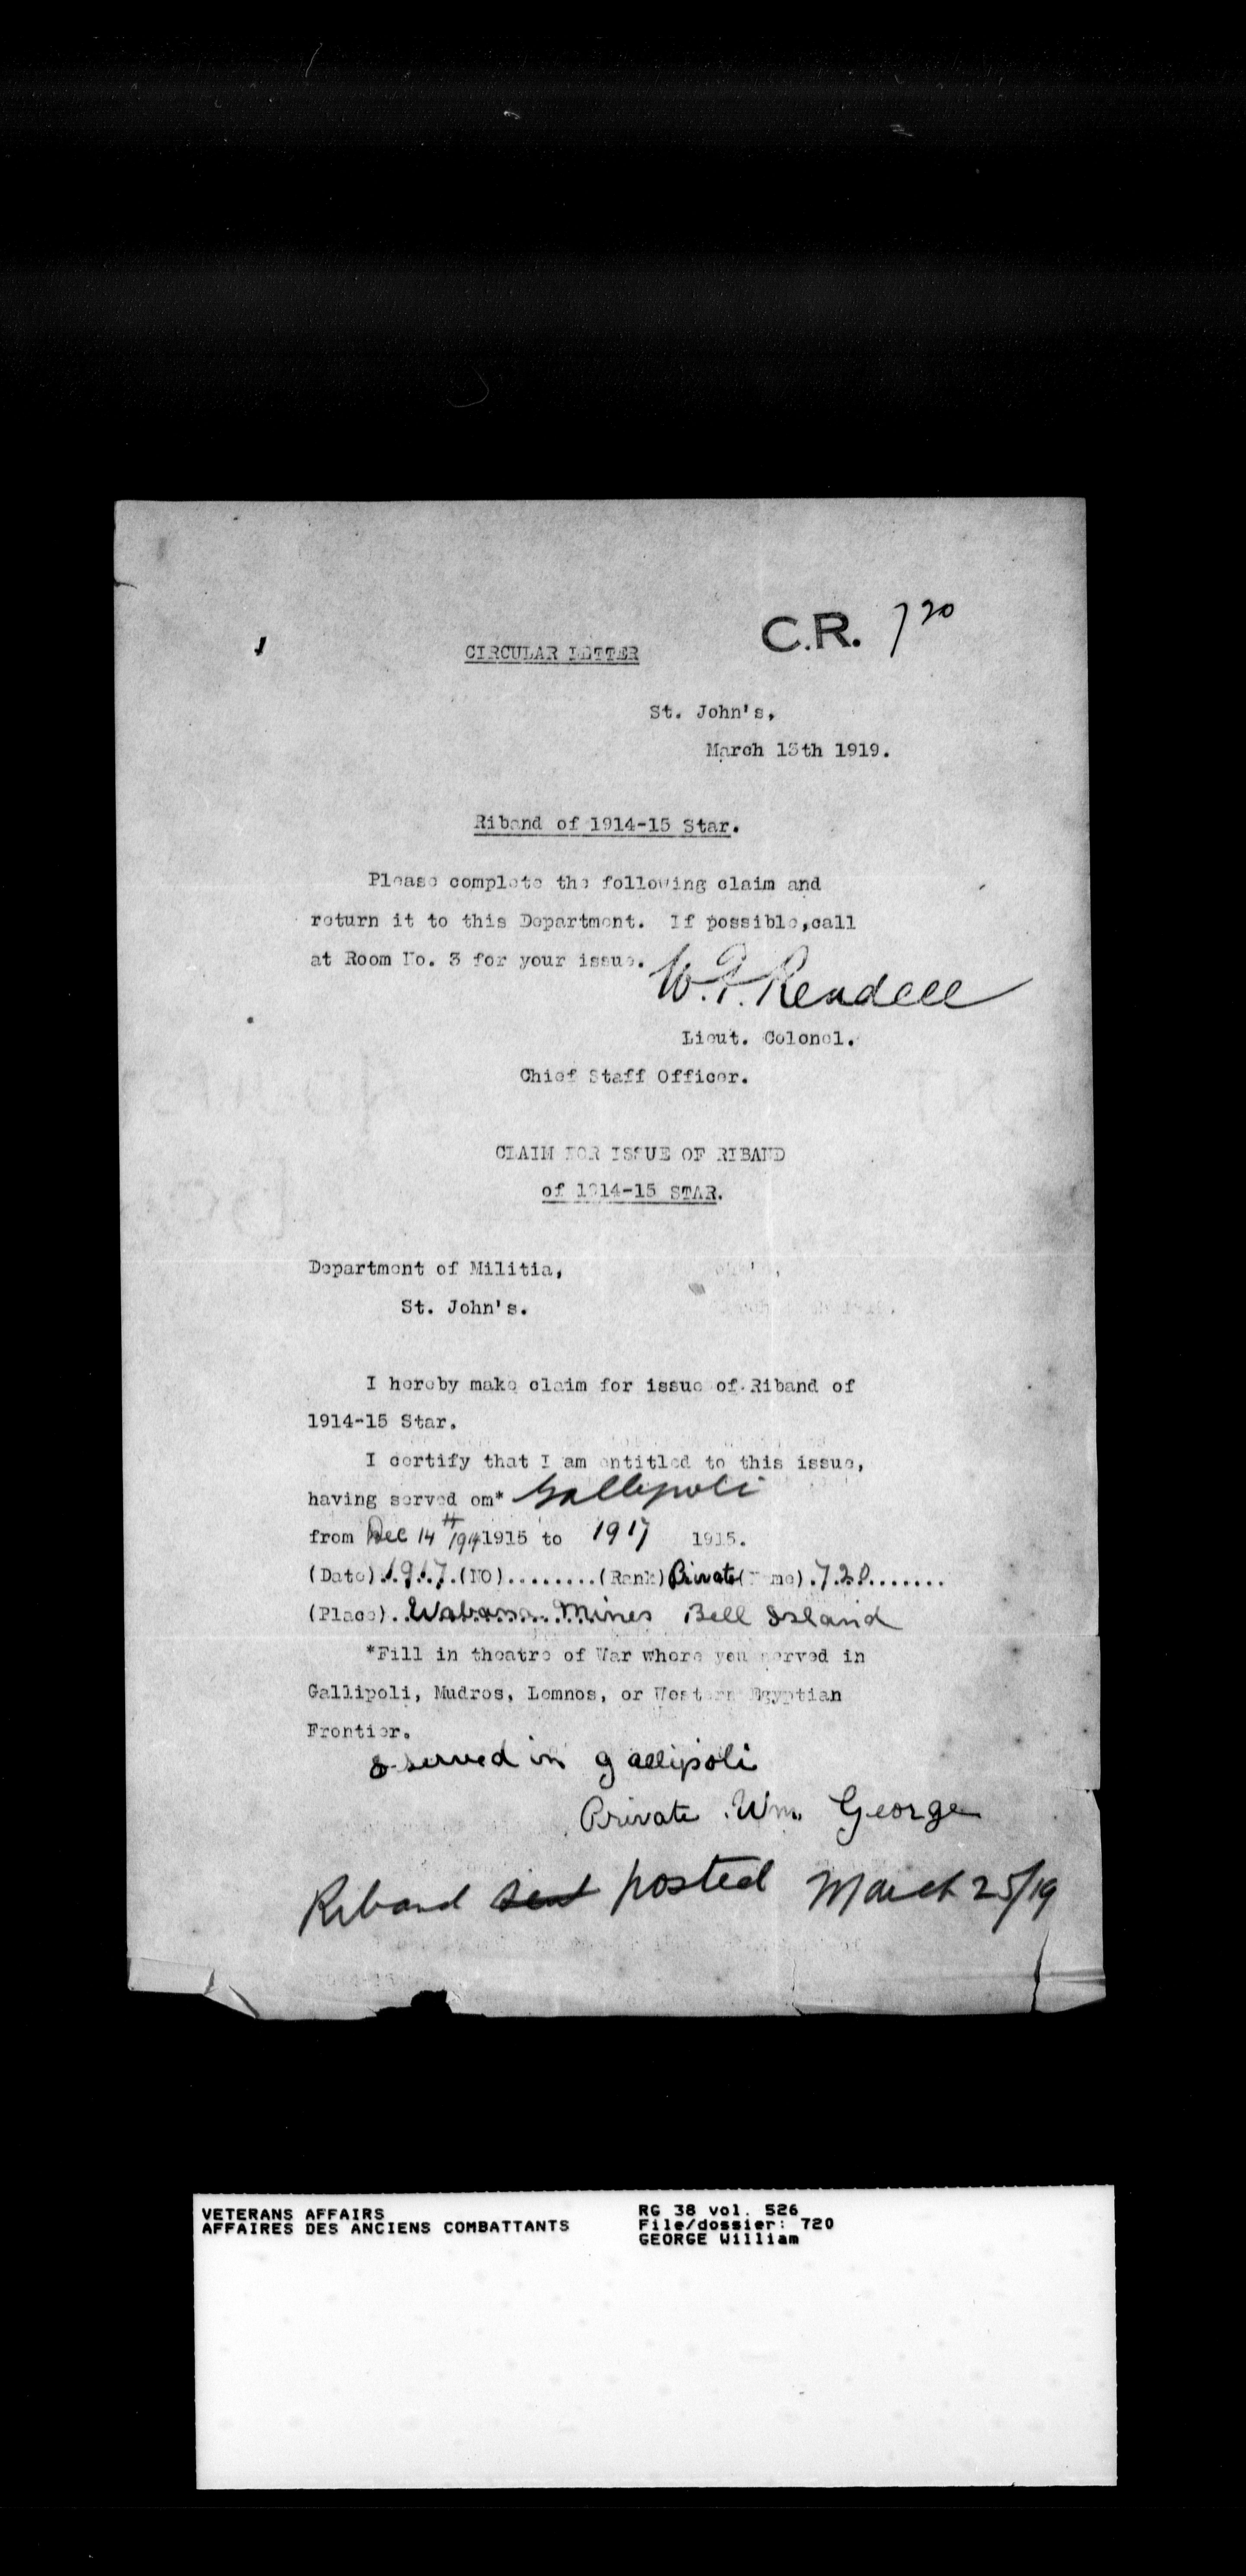 C.R. 720
CIRCULAR LETTER
St. John's,
March 15th 1919.
Riband of 1914-15 Star.
Please complete the following claim and
return it to this Department. If possible,call
at Room No. 3 for your issue.
W.F. Rendell
Lieut. Colonel.
Chief Staff Officer.
CLAIM FOR ISSUE OF RIBAND
of 1914-15 STAR.
Department of Militia,
St. John's.
I hereby make claim for issue of Riband of
1914-15 Star.
I certify that I am entitled to this issue,
having served om* Gallipoli
from Dec 14th 1914 1915 to 1917 1915.
(Date).1917.(NO)........(Rank)Private(Name).720.......
(Place)..Wabana Mines Bell Island
*Fill in theatre of War where you served in
Gallipoli, Mudros, Lemnos, or Western Egyptian
Frontier.
I served in gallipoli
Private Wm. George
Riband sent posted March 25/19
VETERANS AFFAIRS
AFFAIRES DES ANCIENS COMBATTANTS
RG 38 vol. 526
File/dossier: 720
GEORGE William